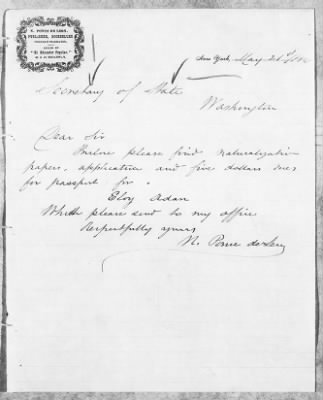 N. PONCE DE LEON,
PUBLISHER, BOOKSELLER
New York, May 21
Secretary of State
Washington
Dear Sir
Inclose please find naturalization
papers, application and five dollars dues
for passport for
Eloy Adan
Which please send to my office
Respectfully yours
N. Ponce de Leon